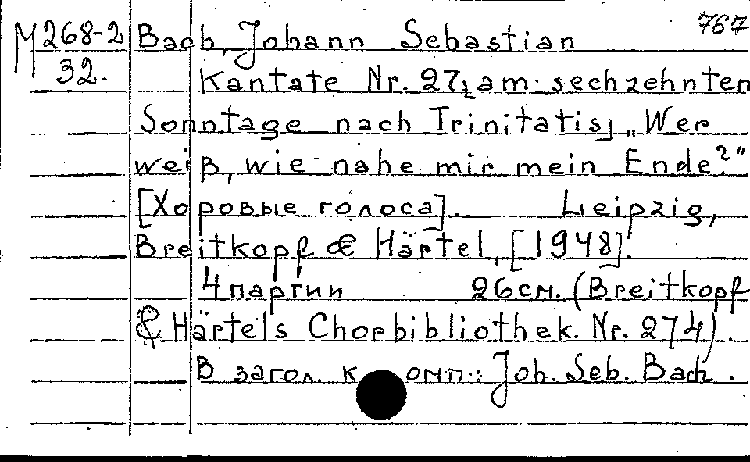 767
M 268-2 Bach, Johann Sebastian
32. Kantate Nr. 27; am sechzehnten
Sonntage nach Trinitatis, „Wer
weiß, wie nahe mir mein Ende?"
[Хоровые голоса]. Leipzig,
Breitkopf & Härtel, [1948].
4 партии 26см. (Breitkopf
& Härtels Chorbibliothek. Nr. 274).
В загол. комп.: Joh. Seb. Bach.